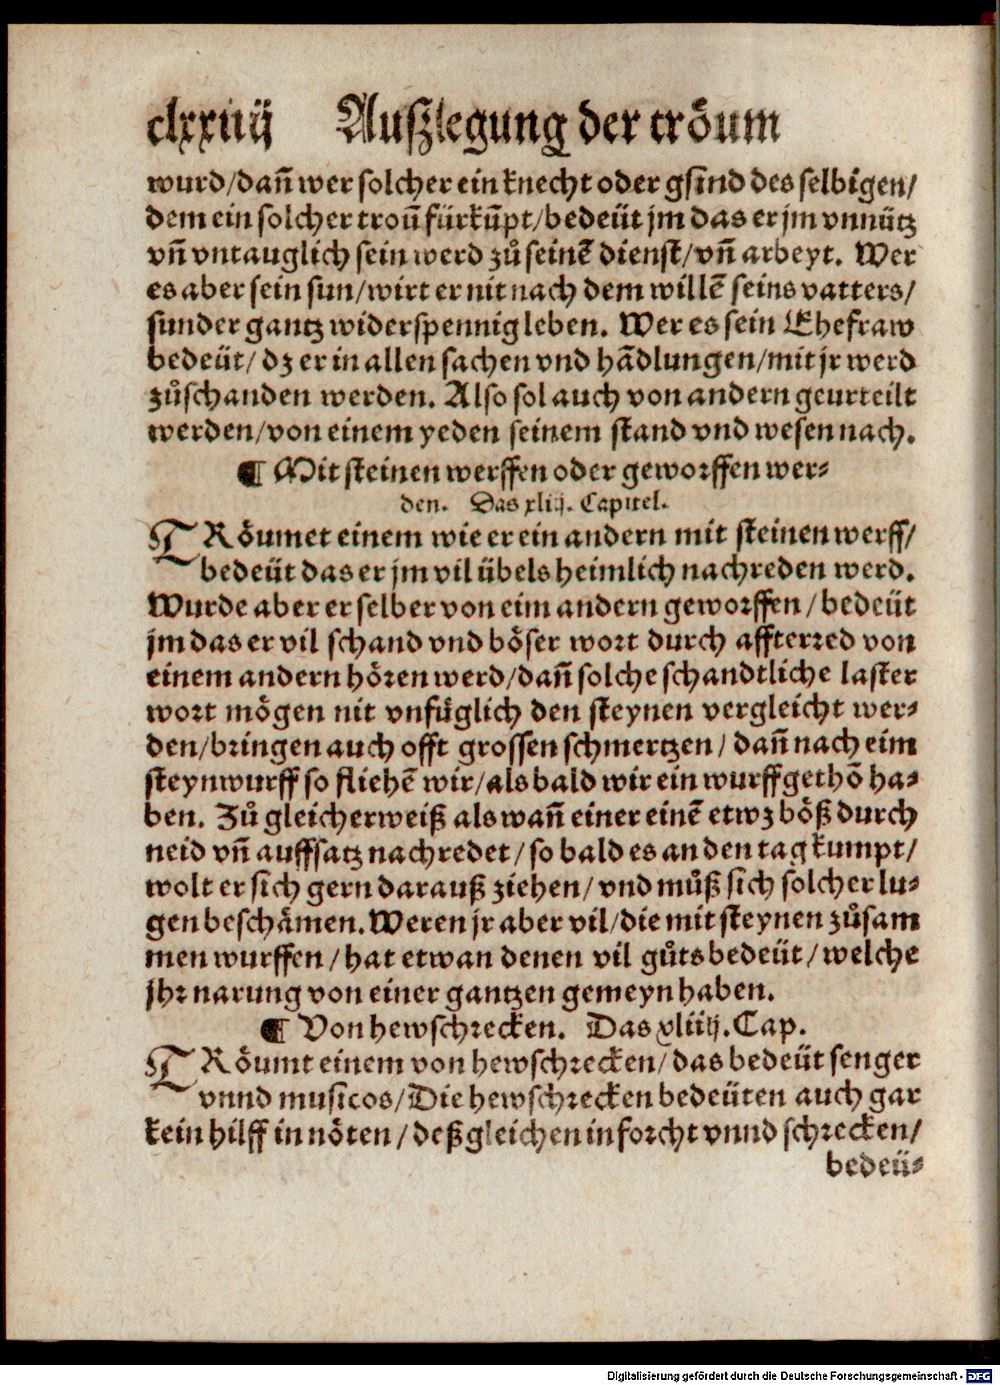 clxxiiij Außlegung der tröum
wurd/dañ wer solcher ein knecht oder gsind des selbigen/
dem ein solcher troũ fürkũpt/bedeüt jm das er jm vnnütz
vñ vntauglich sein werd zů seinẽ dienst/vñ arbeyt. Wer
es aber sein sun/wirt er nit nach dem willẽ seins vatters/
sunder gantz widerspennig leben. Wer es sein Ehefraw
bedeüt/dz er in allen sachen vnd hãdlungen/mit jr werd
zůschanden werden. Also sol auch von andern geurteilt
werden/von einem yeden seinem stand vnd wesen nach.
¶ Mit steinen werffen oder geworffen wer⸗
den. Das xliij. Capitel.
TRöumet einem wie er ein andern mit steinen werff/
bedeüt das er jm vil übels heimlich nachreden werd.
Wurde aber er selber von eim andern geworffen/bedeüt
jm das er vil schand vnd böser wort durch affterred von
einem andern hören werd/dañ solche schandtliche laster
wort mögen nit vnfüglich den steynen vergleicht wer⸗
den/bringen auch offt grossen schmertzen/dañ nach eim
steynwurff so fliehẽ wir/als bald wir ein wurff gethõ ha⸗
ben. Zů gleicherweiß als wañ einer einẽ etwz böß durch
neid vñ auffsatz nachredet/so bald es an den tag kumpt/
wolt er sich gern darauß ziehen/vnd můß sich solcher lu⸗
gen beschämen. Weren jr aber vil/die mit steynen zůsam
men wurffen/hat etwan denen vil gůts bedeüt/welche
jhr narung von einer gantzen gemeyn haben.
¶ Von hewschrecken. Das xliiij. Cap.
TRöumt einem von hewschrecken/das bedeüt senger
vnnd musicos/Die hewschrecken bedeüten auch gar
kein hilff in nöten/deßgleichen in forcht vnnd schrecken/
bedeü⸗
Digitalisierung gefördert durch die Deutsche Forschungsgemeinschaft - DFG